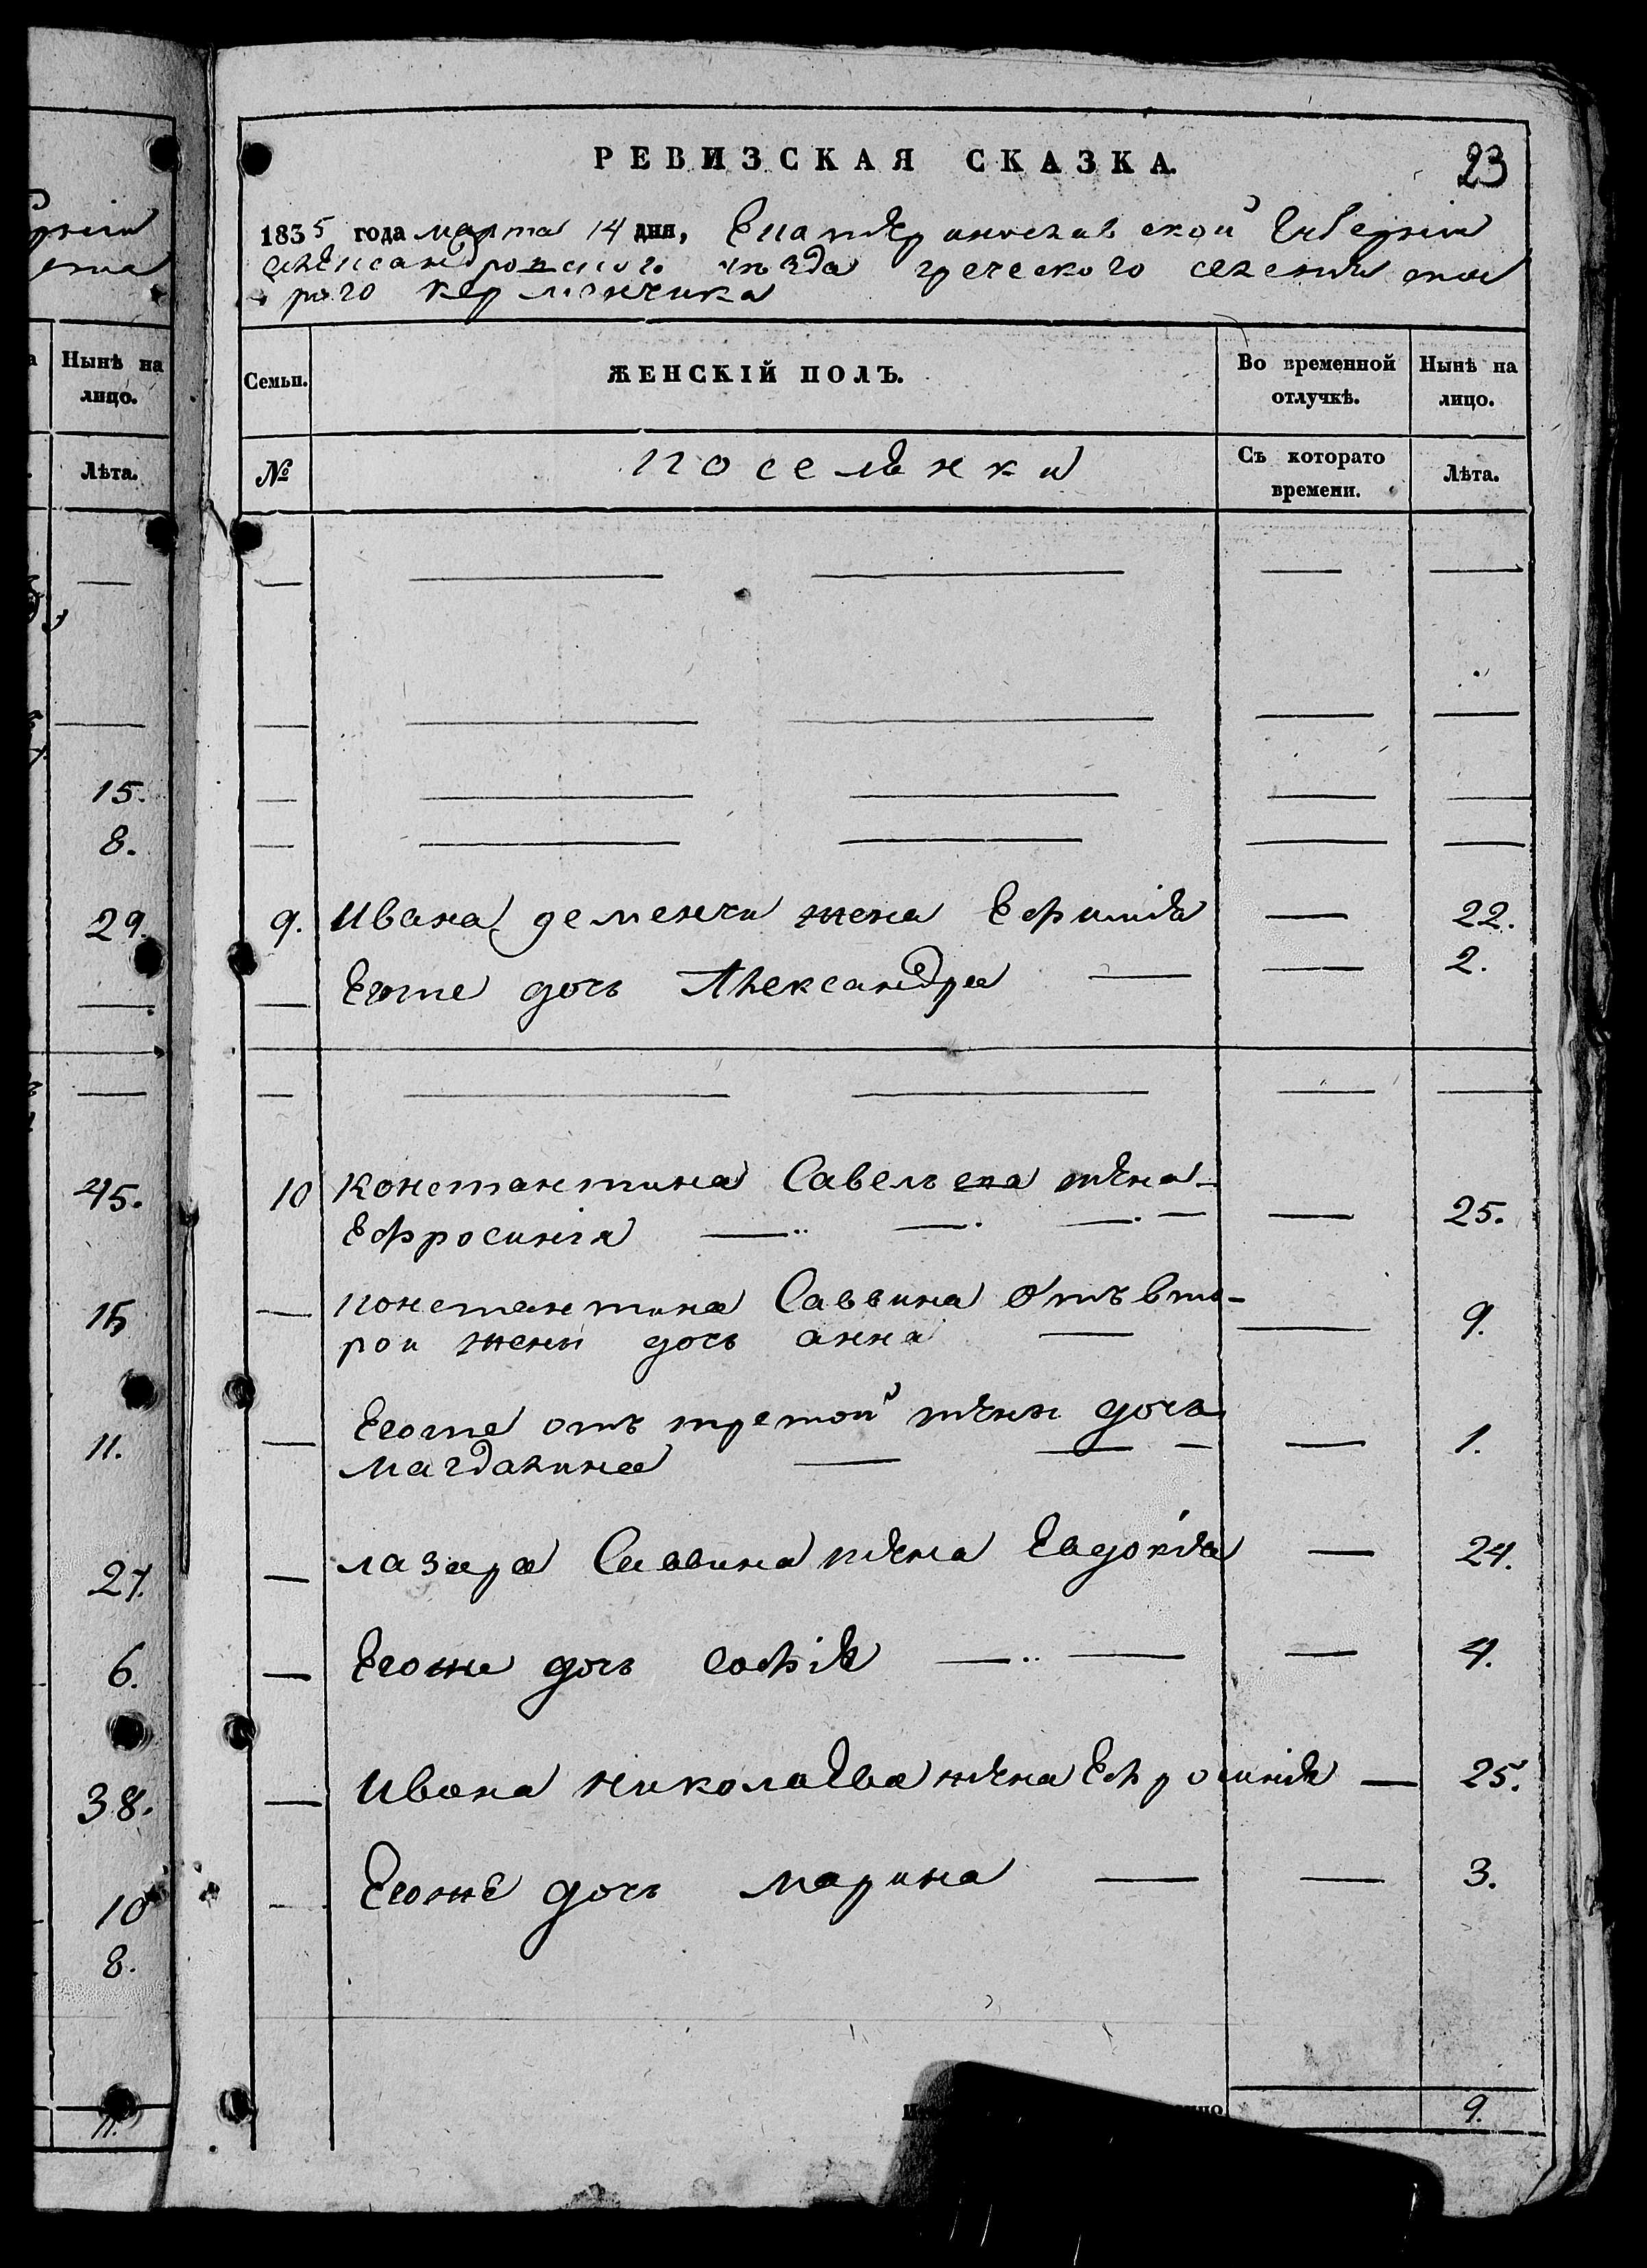 РЕВИЗСКАЯ СКАЗКА.
23
1835 года марта 14 дня, Екатеринославской Губернии
Александровского уезда греческого селения ста
рого Керменчика
Нынѣ на
лицо.
Семьи.
ЖЕНСКІЙ ПОЛЪ.
Во временной
отлучкѣ.
Нынѣ на
лицо.
Лѣта.
№
поселѣнки
Съ котораго
времени.
Лѣта.
15.
8.
29. 9. Ивана деменчи жена Ефимія — 22.
Егоже дочь Александра — — 2.
45. 10 Константина Савельева жена
Ефросинія — — 25.
15 — Константина Саввина отъ вто-
рои жены дочь анна — — 9.
11. — Егоже отъ третой жены дочь
Магдалина — — 1.
27. — лазаря Саввина жена Евдокія — 24.
6. — Егоже дочь софія — — 4.
38. — Ивана николаева жена Ефросинія — 25.
10 — Егоже дочь марина — — 3.
8.
11.
9.